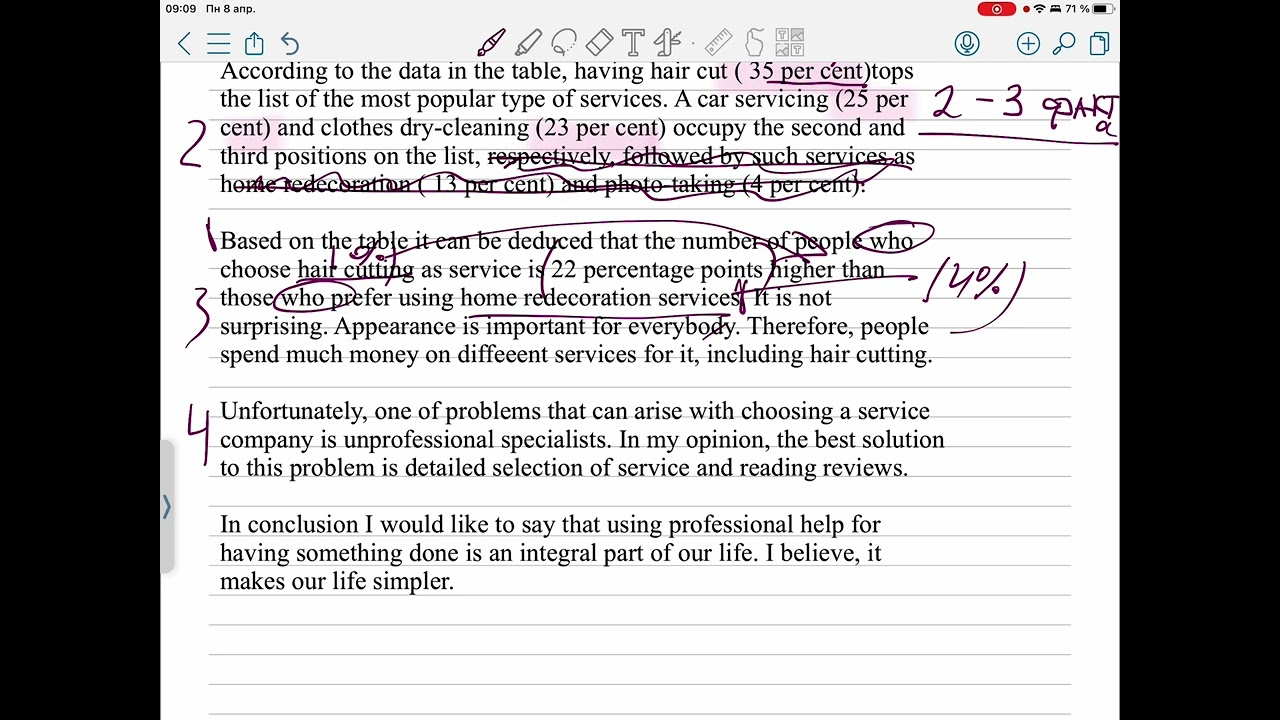 09:09 Пн 8 апр.
71 %
According to the data in the table, having hair cut ( 35 per cent)tops
the list of the most popular type of services. A car servicing (25 per
2 - 3 факт
а
cent) and clothes dry-cleaning (23 per cent) occupy the second and
2
third positions on the list, respectively, followed by such services as
home redecoration ( 13 per cent) and photo-taking (4 per cent).
Based on the table it can be deduced that the number of people who
choose hair cutting as service is 22 percentage points higher than
(4%)
those who prefer using home redecoration services. It is not
3
surprising. Appearance is important for everybody. Therefore, people
spend much money on diffeeent services for it, including hair cutting.
4
Unfortunately, one of problems that can arise with choosing a service
company is unprofessional specialists. In my opinion, the best solution
to this problem is detailed selection of service and reading reviews.
In conclusion I would like to say that using professional help for
having something done is an integral part of our life. I believe, it
makes our life simpler.